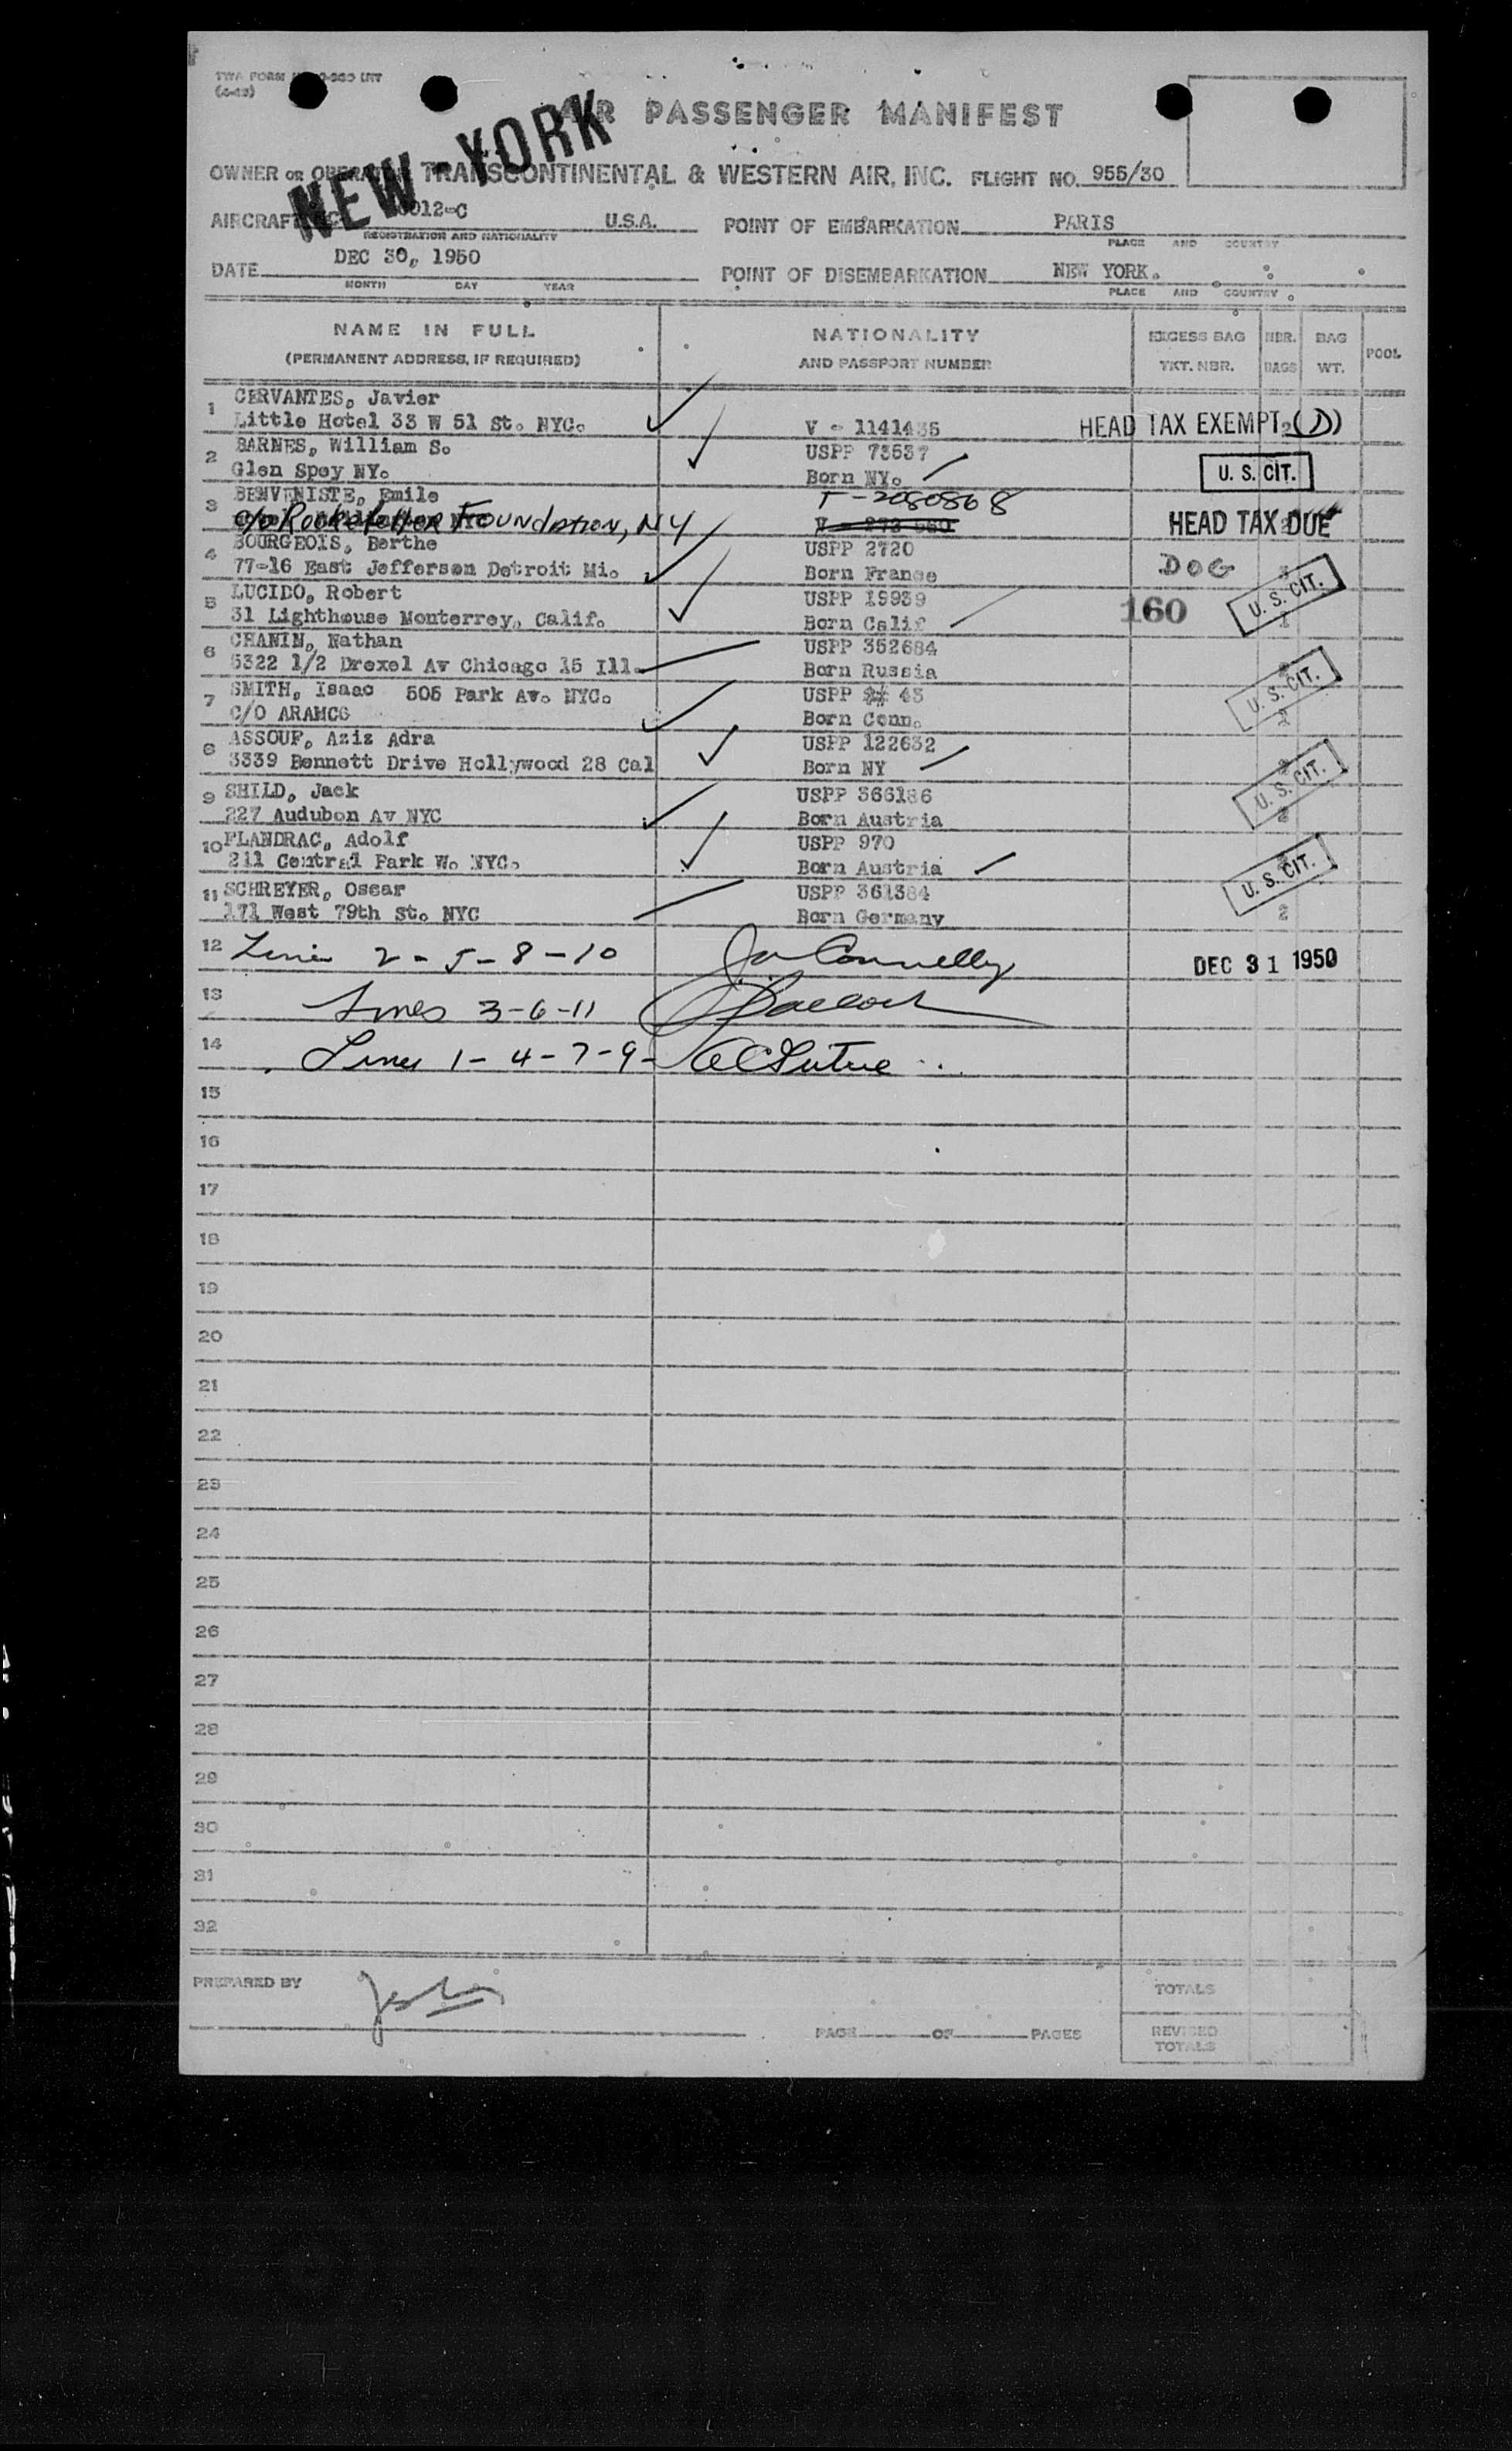 TWA FORM
AIR PASSENGER MANIFEST
NEW-YORK
OWNER OR OPERATOR TRANSCONTINENTAL & WESTERN AIR, INC. FLIGHT NO. 955/30
AIRCRAFT 6012-C U.S.A. POINT OF EMBARKATION PARIS
REGISTRATION AND NATIONALITY PLACE AND COUNTRY
DATE DEC 30, 1950 POINT OF DISEMBARKATION NEW YORK.
MONTH DAY YEAR PLACE AND COUNTRY
NAME IN FULL NATIONALITY EXCESS BAG NBR. BAG POOL
(PERMANENT ADDRESS, IF REQUIRED) AND PASSPORT NUMBER TKT. NBR. BAGS WT.
1 CERVANTES, Javier
Little Hotel 33 W 51 St. NYC. V - 1141435 HEAD TAX EXEMPT 2 (D)
2 BARNES, William S. USPP 73537
Glen Spey NY. Born NY. U. S. CIT.
3 BENVENISTE, Emile T-2080868
c/o Rockefeller Foundation, NY HEAD TAX DUE
4 BOURGEOIS, Berthe USPP 2720
77-16 East Jefferson Detroit Mi. Born France DOG
5 LUCIDO, Robert USPP 19939 160 U. S. CIT.
31 Lighthouse Monterrey, Calif. Born Calif 1
6 CHANIN, Nathan USPP 352684
5322 1/2 Drexel Av Chicago 15 Ill. Born Russia
7 SMITH, Isaac 505 Park Av. NYC. USPP 43 U. S. CIT.
C/O ARAMCO Born Conn.
8 ASSOUF, Aziz Adra USPP 122632
3339 Bennett Drive Hollywood 28 Cal Born NY U. S. CIT.
9 SHILD, Jack USPP 366186
227 Audubon Av NYC Born Austria
10 FLANDRAC, Adolf USPP 970
211 Central Park W. NYC. Born Austria U. S. CIT.
11 SCHREYER, Oscar USPP 361384
171 West 79th St. NYC Born Germany 2
12 Lines 2-5-8-10 Connelly DEC 31 1950
13 Lines 3-6-11
14 Lines 1-4-7-9-
15
16
17
18
19
20
21
22
23
24
25
26
27
28
29
30
31
32
PREPARED BY TOTALS
PAGE OF PAGES REVISED
TOTALS